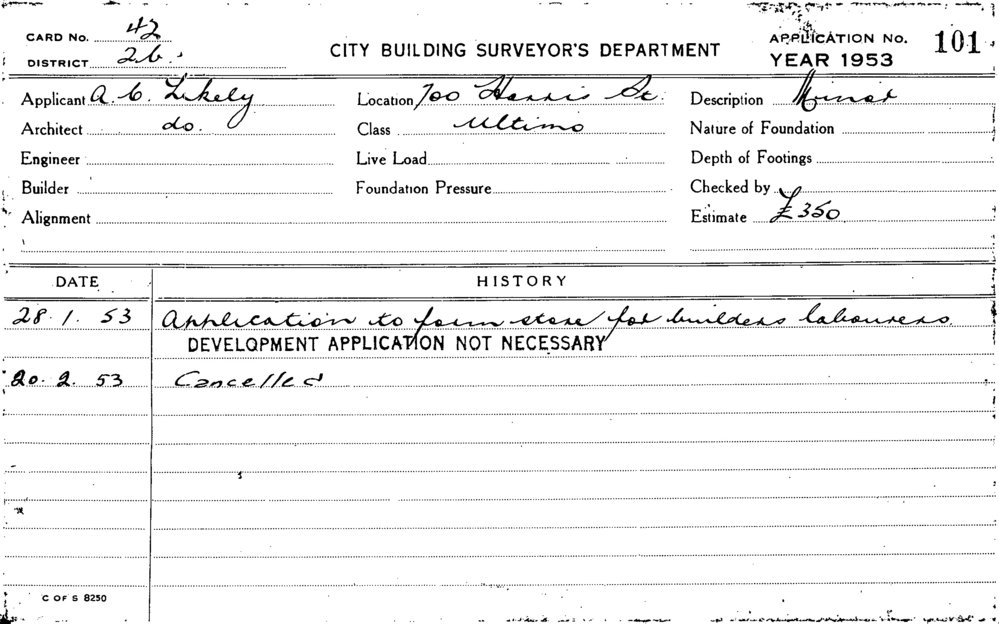 CARD No. 42
DISTRICT 26.
CITY BUILDING SURVEYOR'S DEPARTMENT
APPLICATION No. 101
YEAR 1953
Applicant A. C. Likely
Location 700 Harris St.
Description Minor
Architect do.
Class Ultimo
Nature of Foundation
Engineer
Live Load
Depth of Footings
Builder
Foundation Pressure
Checked by
Alignment
Estimate £350
DATE HISTORY
28. 1. 53 Application to form store for builders labourers.
DEVELOPMENT APPLICATION NOT NECESSARY
20. 2. 53 Cancelled
C OF S 8250